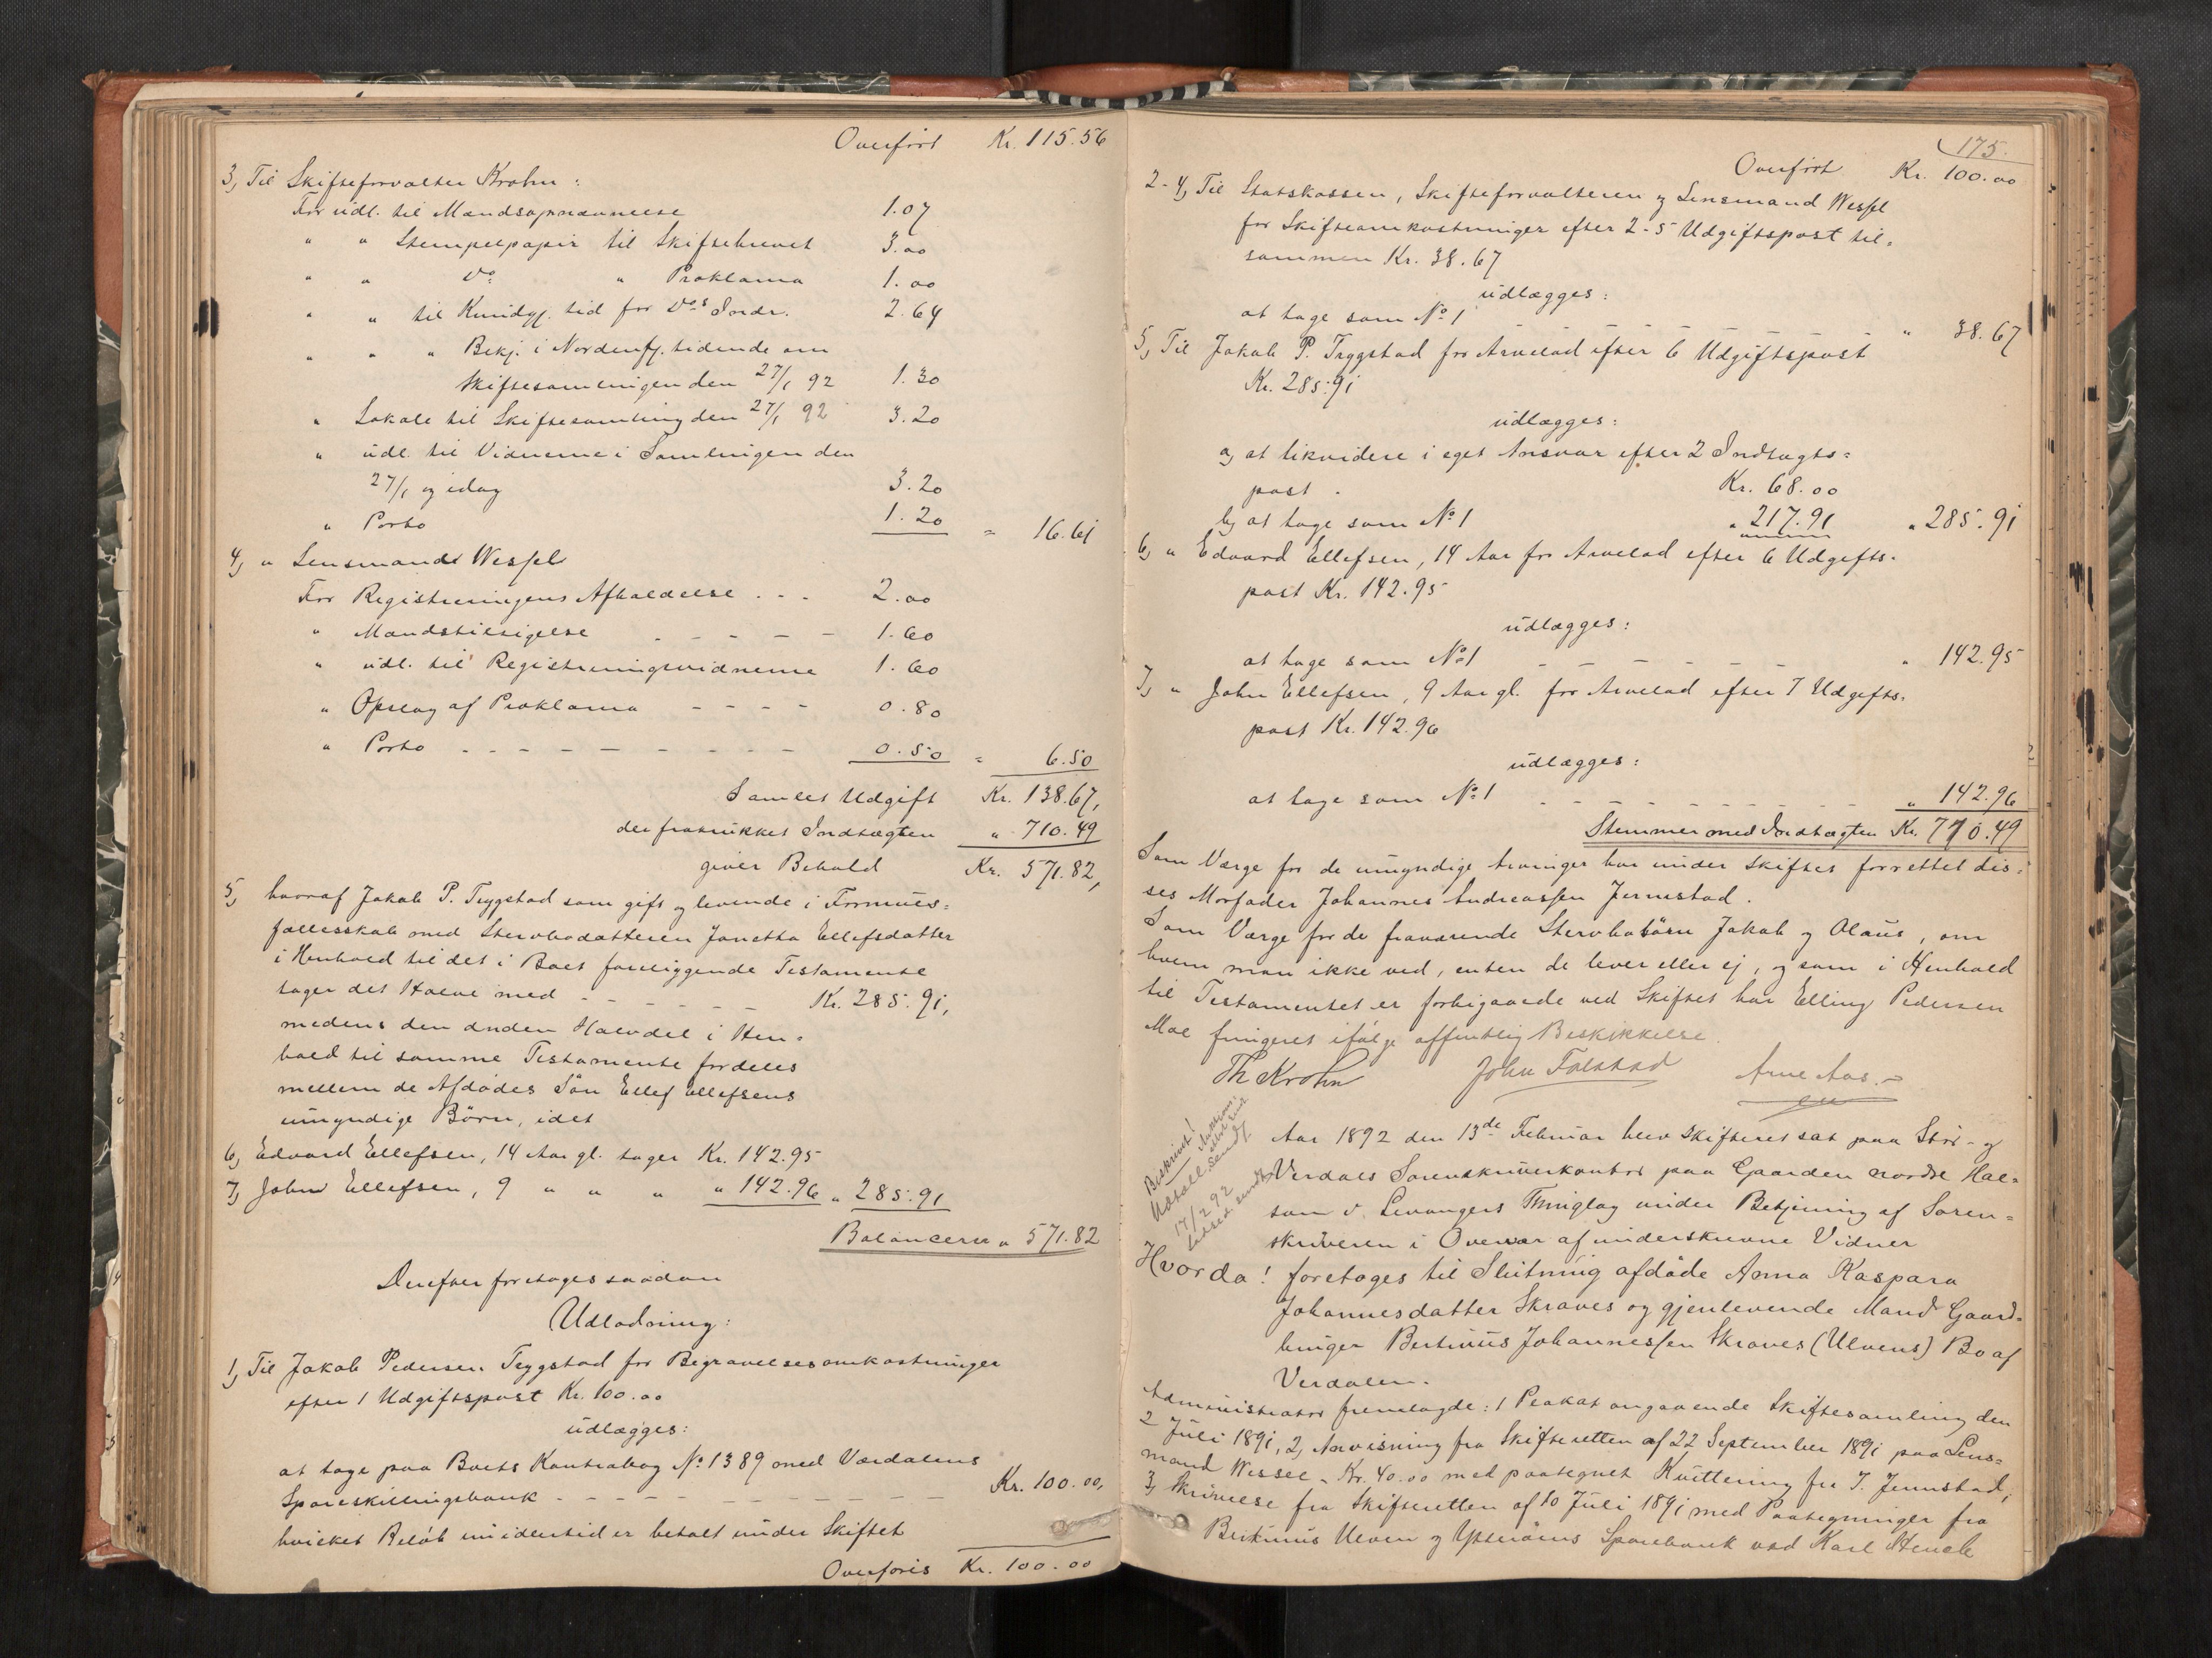 Overført Kr. 115.56
3, Til Skifteforvalter Krohn:
For udl. til Mandsopnævnelse 1.07
" " Stempelpapir til Skiftebrevet 3.00
" " Do " Proklama 1.00
" " til Kundgj. tid for Dos Indr. 2.64
" " " Bekj. i Nordenfj. tidende om
Skiftesamlingen den 27/1 92 1.30
" Lokale til Skiftesamling den 27/1 92 3.20
" udl. til Vidnerne i Samlingen den
27/1 og idag 3.20
" Porto 1.20 " 16.61
4, " Lensmand Wessel
For Registreringens Afholdelse . . . 2.00
" Mandstilsigelse - - - - - 1.60
" udl. til Registreringsvidnerne 1.60
" Opslag af Proklama - - - - 0.80
" Porto - - - - - - - - - 0.50 " 6.50
Samlet Udgift Kr. 138.67,
der fratrukket Indtægten " 710.49
giver Behold Kr. 571.82,
5, hvoraf Jakob P. Trygstad som gift og levende i Formues-
fællesskab med Stervbodatteren Janetta Ellefsdatter
i Henhold til det i Boet foreliggende Testamente
tager det Halve med - - - - - - Kr. 285.91,
medens den anden Halvdel i Hen-
hold til samme Testamente fordeles
mellem de Afdødes Søn Ellef Ellefsens
umyndige Børn, idet
6, Edvard Ellefsen, 14 Aar gl. tager Kr. 142.95
7, John Ellefsen, 9 " " " " 142.96 " 285.91
Balancerer " 571.82
Derefter foretages saadan
Udlodning:
1, Til Jakob Pedersen Trygstad for Begravelsesomkostninger
efter 1 Udgiftspost Kr. 100.00
udlægges:
at tage paa Boets Kontrabog No 1389 med Værdalens
Spareskillingsbank - - - - - - - - - Kr. 100.00,
hvilket Beløb imidlertid er betalt under Skiftet
Overføres Kr. 100.00
175.
Overført Kr. 100.00
2-4, Til Statskassen, Skifteforvalteren og Lensmand Wessel
for Skifteomkostninger efter 2-5 Udgiftspost til-
sammen Kr. 38.67
udlægges:
at tage som No 1 - - - - - - " 38.67
5, Til Jakob P. Trygstad for Arvelod efter 6 Udgiftspost
Kr. 285.91
udlægges:
a, at likvidere i eget Ansvar efter 2 Indtægts-
post . Kr. 68.00
b, at tage som No 1 " 217.91 " 285.91
6, " Edvard Ellefsen, 14 Aar for Arvelod efter 6 Udgifts-
post Kr. 142.95
udlægges:
at tage som No 1 - - - - - - " 142.95
7, " John Ellefsen, 9 Aar gl. for Arvelod efter 7 Udgifts-
post Kr. 142.96
udlægges:
at tage som No 1 - - - - - - - - " 142.96
Stemmer med Indtægten Kr. 710.49
Som Værge for de umyndige Arvinger har under Skiftet forrettet dis-
ses Morfader Johannes Andreassen Jermstad.
Som Værge for de fraværende Stervbobørn Jakob og Olaus, om
hvem man ikke ved, enten de lever eller ej, og som i Henhold
til Testamentet er forbigaaede ved Skiftet har Elling Pedersen
Moe fungeret ifølge offentlig Beskikkelse.
Th Krohn John Falstad Arne Aas.
Beskrivet!
17/2 92
Aar 1892 den 13de Februar blev Skifteret sat paa Stør- og
Verdals Sorenskriverkontor paa Gaarden nordre Hal-
san i Levangers Thinglag under Betjening af Soren-
skriveren i Overvær af underskrevne Vidner
Hvorda! foretoges til Slutning afdøde Anna Kaspara
Johannesdatter Skraves og gjenlevende Mand Gaard-
bruger Bertinus Johannessen Skraves (Ulvens) Bo af
Verdalen.
Administrator fremlagde: 1 Plakat angaaende Skiftesamling den
2 Juli 1891, 2, Anvisning fra Skifteretten af 22 September 1891 paa Lens-
mand Wessel - Kr. 40.00 med paategnet Kvittering fra J. Jermstad,
3, Skrivelse fra Skifteretten af 10 Juli 1891 med Paategninger fra
Bertinus Ulven og Ytterøens Sparebank ved Karl